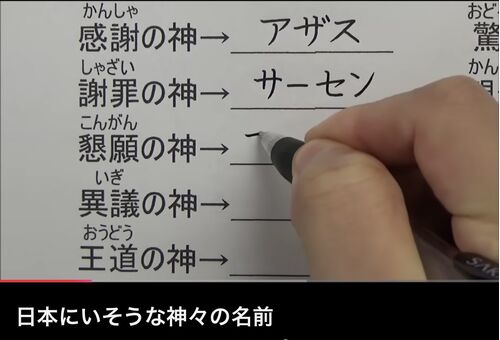 かんしゃ
感謝の神→ アザス
しゃざい
謝罪の神→ サーセン
こんがん
懇願の神→
いぎ
異議の神→
おうどう
王道の神→
おど
驚
かん
日本にいそうな神々の名前